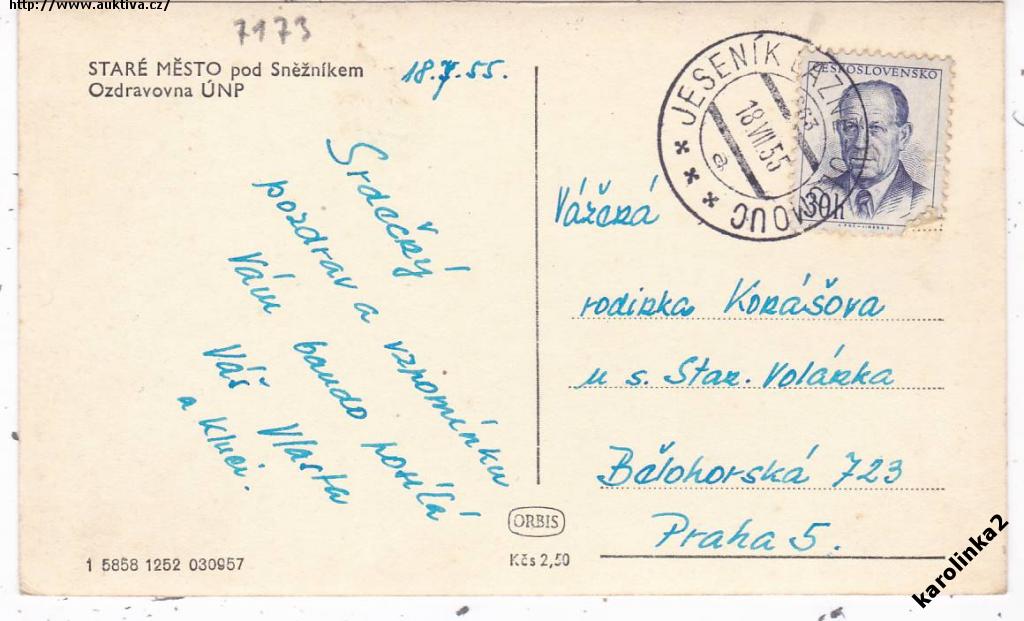 http://www.auktiva.cz/
7173
STARÉ MĚSTO pod Sněžníkem
Ozdravovna ÚNP
18.7.55.
Srdečný
pozdrav a vzpomínku
Vám bando posílá
Váš Vlasta
a kluci.
JESENÍK LÁZNĚ
18.VII.55
a
OLOMOUC
ČESKOSLOVENSKO
30h
Vážená
rodinka Konášova
u s. Star. Volánka
Bělohorská 723
Praha 5.
ORBIS
Kčs 2,50
1 5858 1252 030957
karolinka2